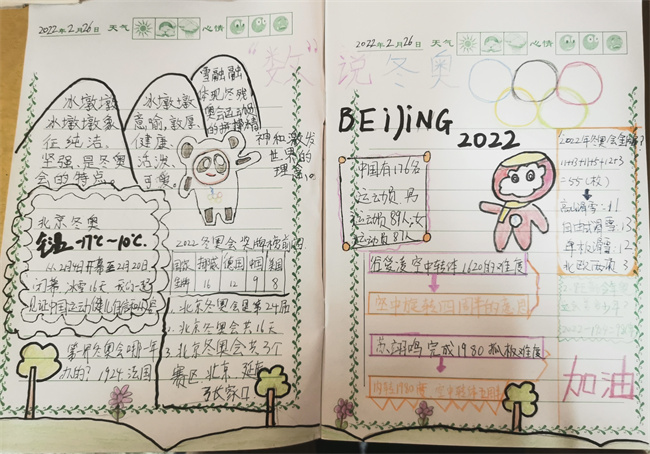 2022年2月26日 天气 心情
冰墩墩
冰墩墩象
征纯洁、
坚强,是冬奥
会的特点。
冰墩墩
意喻,敦厚,
健康、
活泼、
可爱。
雪融融
体现冬残
奥运运动员
的拼搏精
神和激发
世界的
理念。
北京冬奥
-17℃~10℃.
2月4日开幕至2月20日
闭幕 冰雪16天
第一界冬奥会哪一年
办的? 1924 法国
2022冬奥会奖牌榜前四
国家 挪威 德国 中国 美国
金牌 16 12 9 8
1. 北京冬奥会是第24届
2. 北京冬奥会共16天
3. 北京冬奥会共3个
赛区 北京 延庆
张家口
2022年2月26日 天气 心情
“数”说冬奥
BEIJING
2022
中国有176名
运动员,男
运动员89人,女
运动员87人
2022年冬奥会
=55(枚)
高山滑雪:11
自由式滑雪:13
单板滑雪:12
北欧两项 3
空中转体1620的难度
空中旋转四周半的
苏翊鸣完成1980 难度
加油